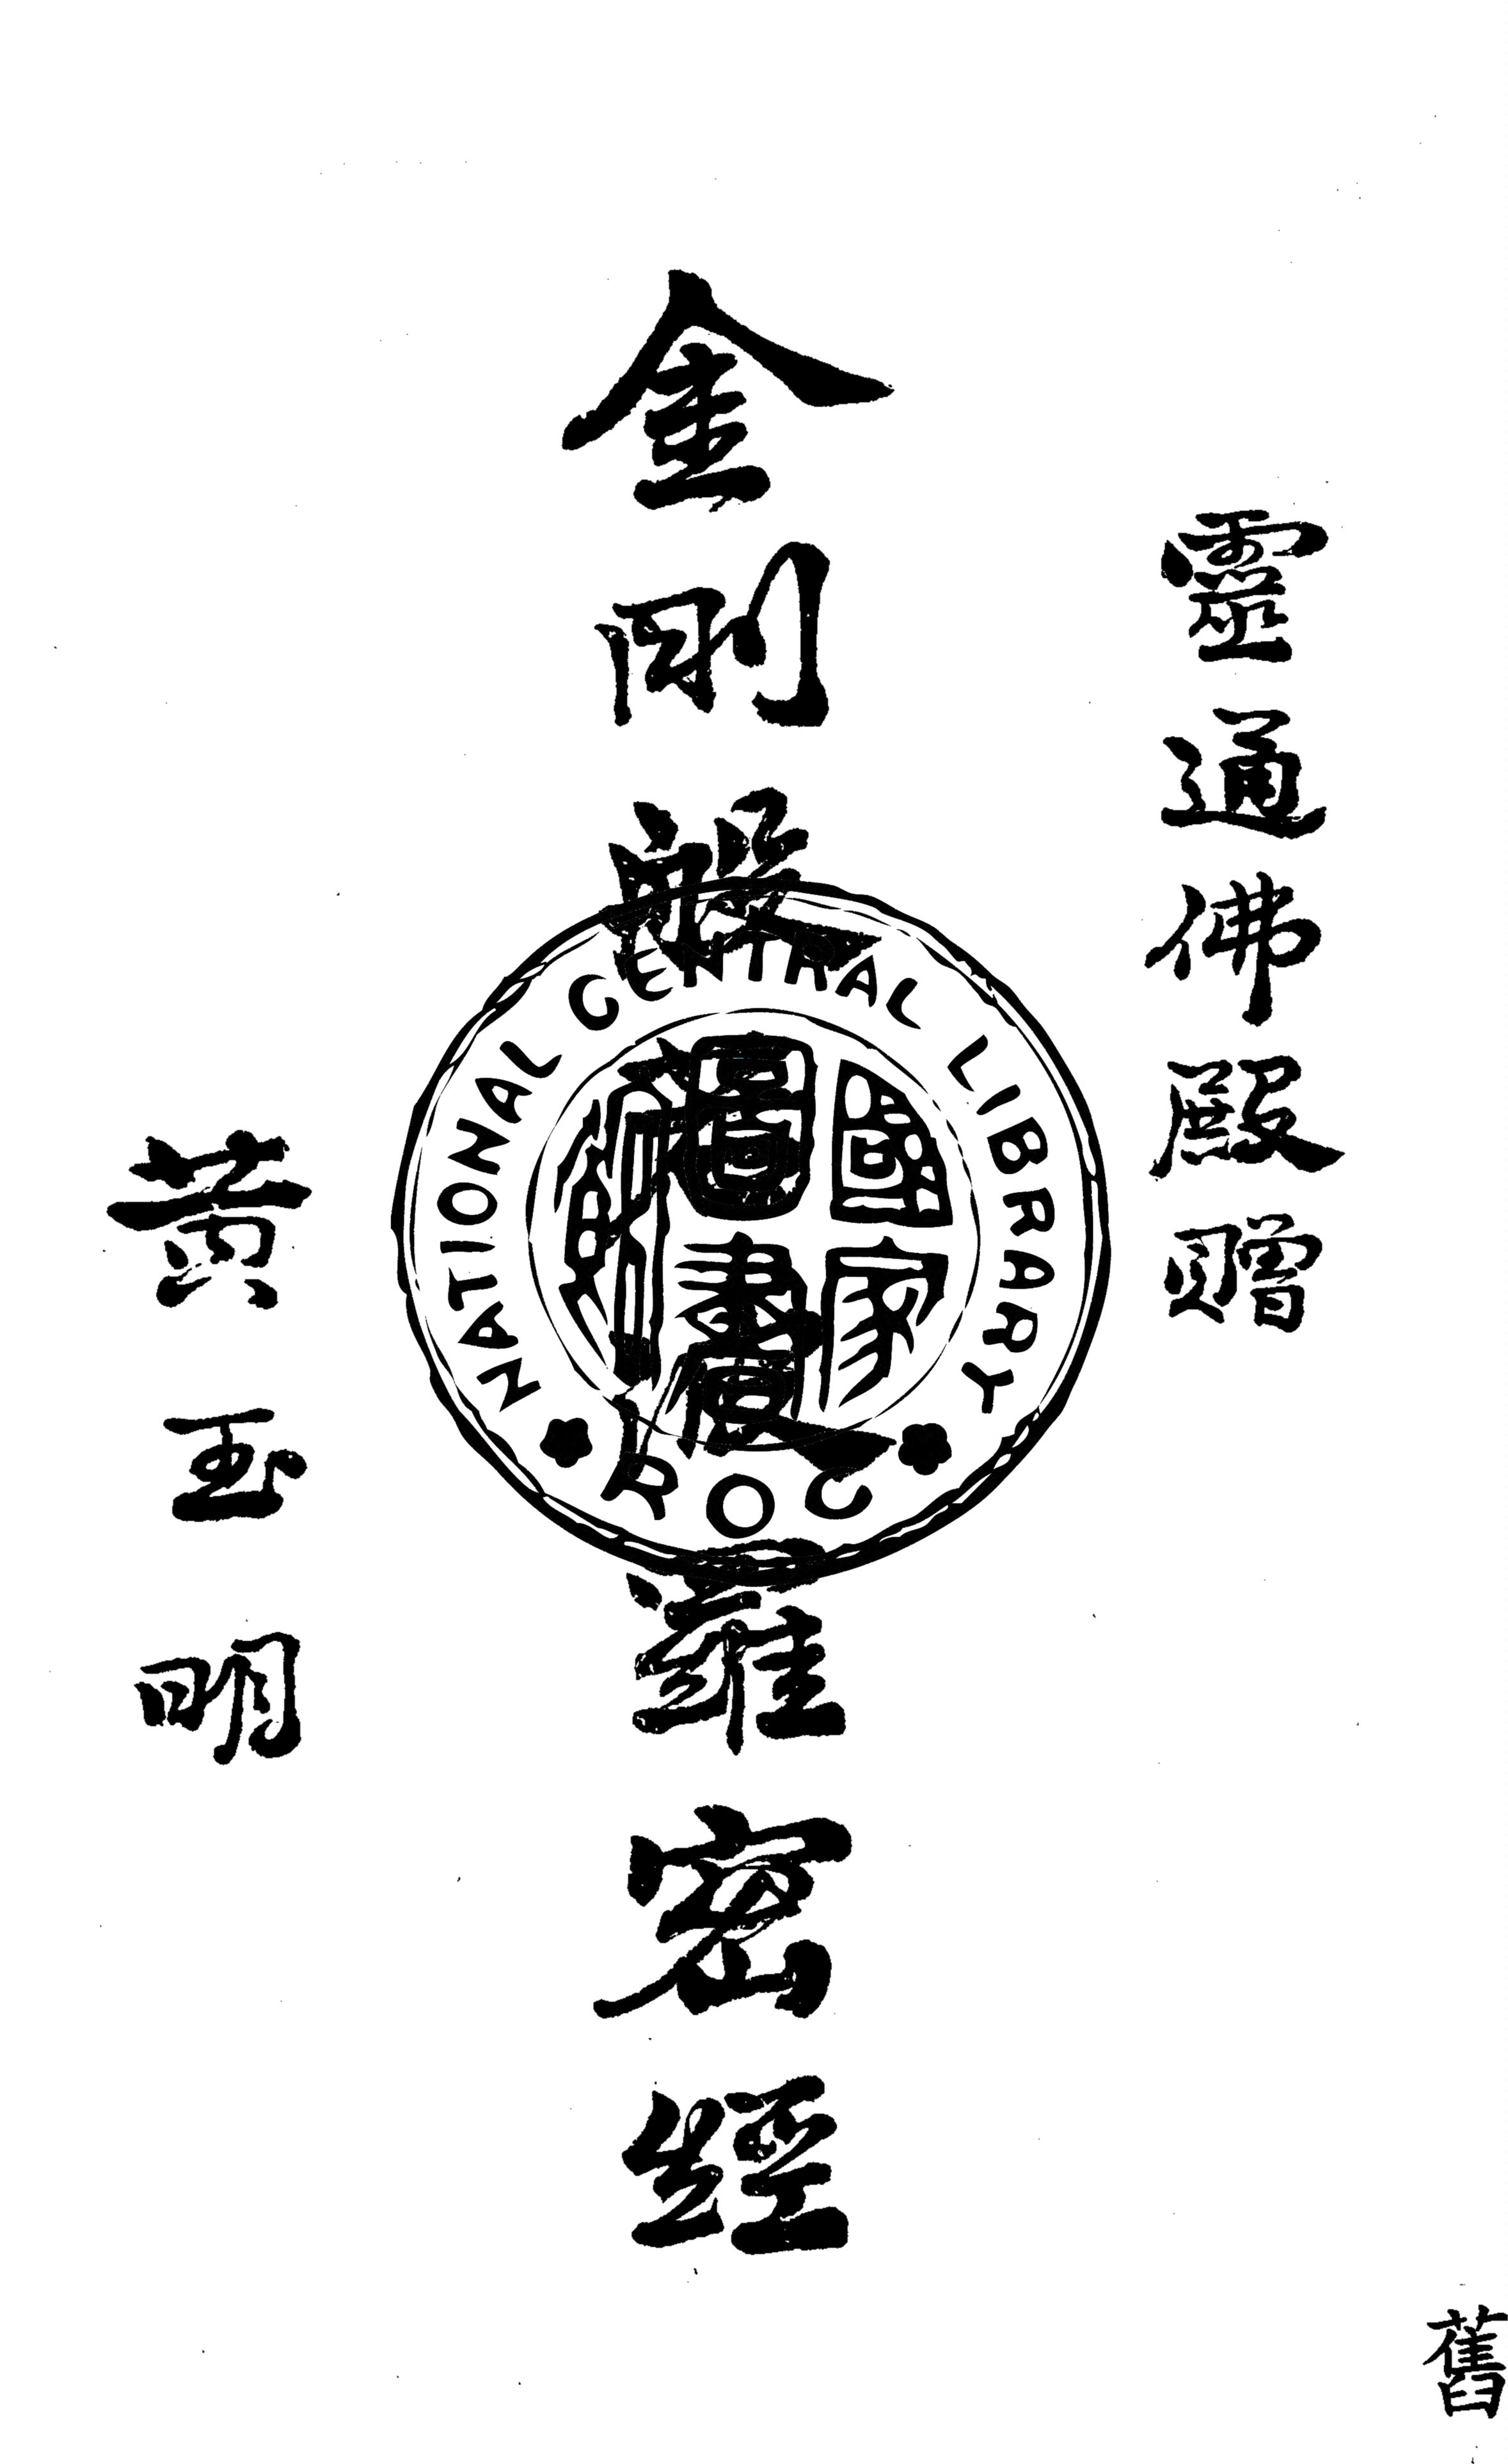 靈通佛殿贈
金剛般若波羅密經
黃玉明
NATIONAL CENTRAL LIBRARY
ROC
國家圖書館
舊